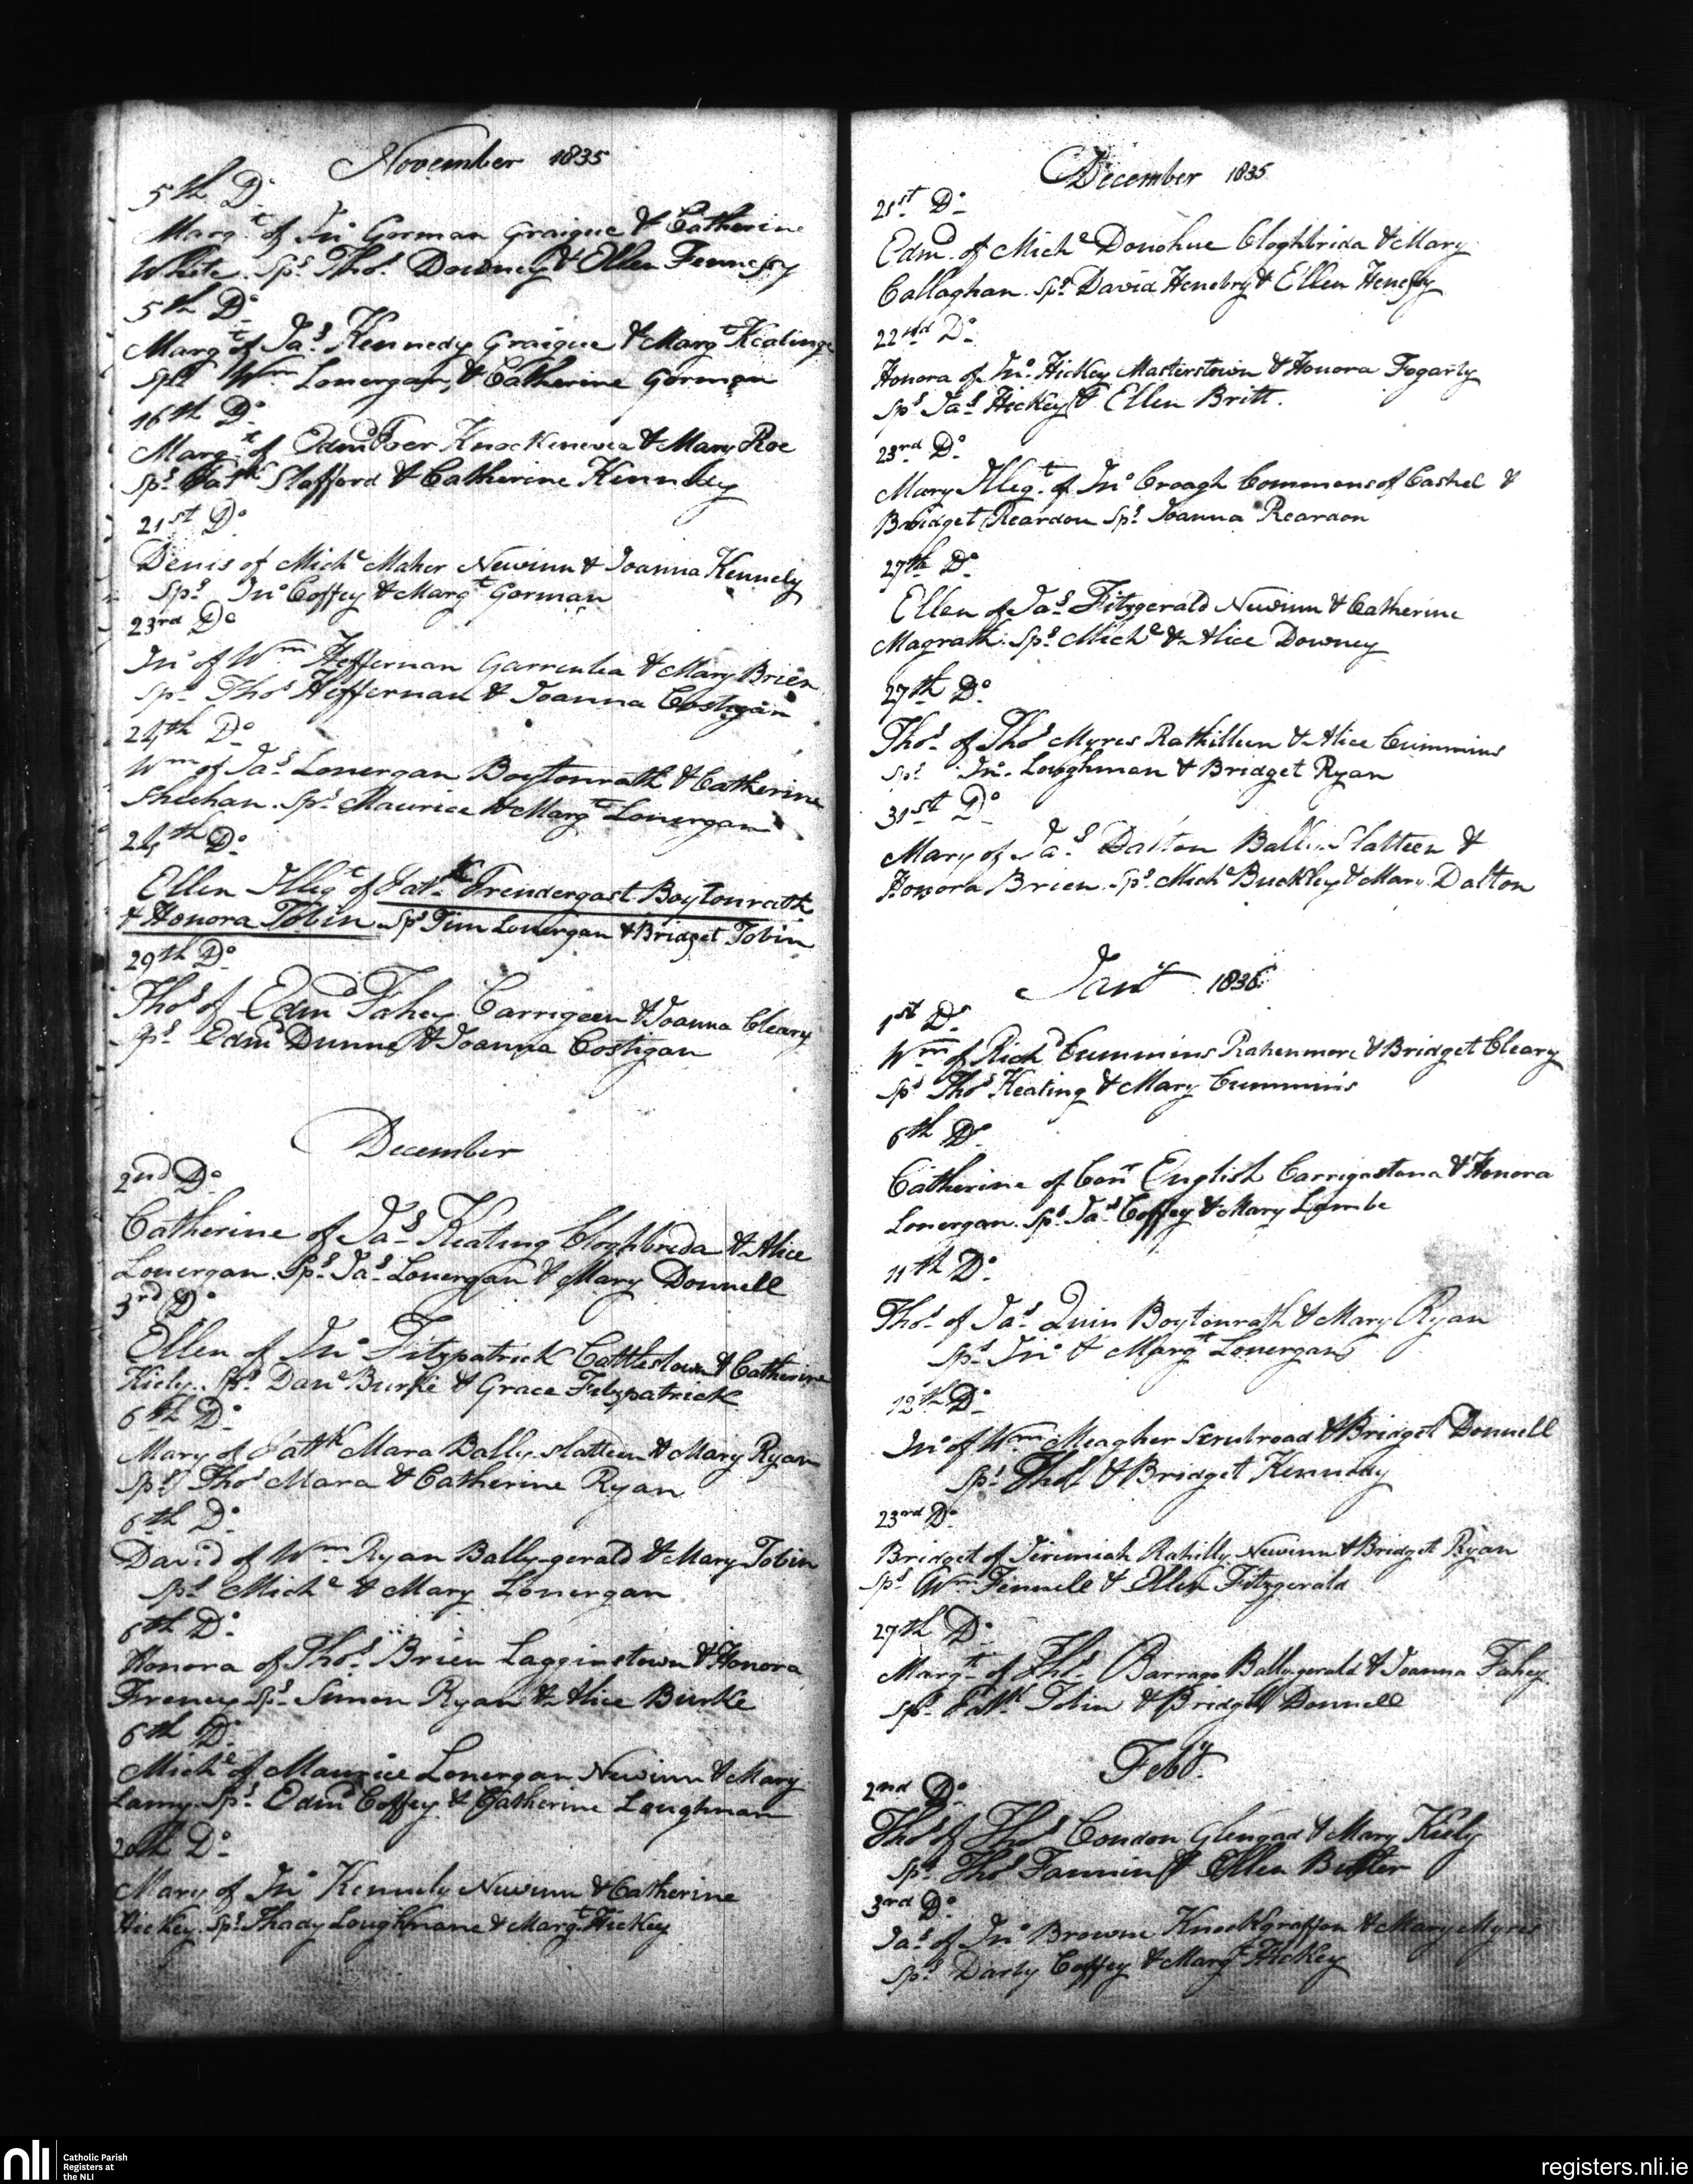 November 1835
5th Do
Margt of Jno Gorman Graigue & Catherine
White. Sps Thos Downey & Ellen Fennessy
5th Do
Margt of Jas Kennedy Graigue & Margt Keating
Sps Wm Lonergan & Catherine Gorman
16th Do
Margt of Edmd Poer Knockenevea & Mary Roe
Sps Patk Stafford & Catherine Kennedy
21st Do
Denis of Miche Maher Newinn & Joanna Kennely
Sps Jno Coffey & Margt Gorman
23rd Do
Jno of Wm Heffernan Garrenlea & Mary Brien
Sps Thos Heffernan & Joanna Costigan
24th Do
Wm of Jas Lonergan Boytonrath & Catherine
Sheehan. Sps Maurice & Margt Lonergan
24th Do
Ellen Illegt of Patk Prendergast Boytonrath
& Honora Tobin Sps Tim Lonergan & Bridget Tobin
29th Do
Thos of Edmd Fahey Carrigeen & Joanna Cleary
Sps Edmd Dunne & Joanna Costigan
December
2nd Do
Catherine of Jas Keating Cloghbrida & Alice
Lonergan. Sps Jas Lonergan & Mary Donnell
3rd Do
Ellen of Jno Fitzpatrick Cattlestown & Catherine
Kiely. Sps Dane Burke & Grace Fitzpatrick
6th Do
Mary of Patk Mara Bally-slatteen & Mary Ryan
Sps Thos Mara & Catherine Ryan
6th Do
David of Wm Ryan Bally-gerald & Mary Tobin
Sps Miche & Mary Lonergan
6th Do
Honora of Thos Brien Lagginstown & Honora
Sps Simon Ryan & Alice Burke
6th Do
Miche of Maurice Lonergan Newinn & Mary
Sps Edmd Coffey & Catherine Loughman
20th Do
Mary of Jno Kennely Newinn & Catherine
Hickey. Sps Thady Loughnane & Margt Hickey
December 1835
21st Do
Edmd of Miche Donohue Cloghbrida & Mary
Callaghan. Sps David Henebry & Ellen Henessy
22nd Do
Honora of Jno Hickey Masterstown & Honora Fogarty
Sps Jas Hickey & Ellen Britt.
23rd Do
Mary Illegt of Jno Croagh Commons of Cashel &
Bridget Reardon Sps Joanna Reardon
27th Do
Ellen of Jas Fitzgerald Newinn & Catherine
Magrath. Sps Miche & Alice Downey
27th Do
Thos of Thos Myres Rathilleen & Alice Cummins
Sps Jno Loughman & Bridget Ryan
31st Do
Mary of Jas Dalton Bally-Slatteen &
Honora Brien. Sps Miche Buckley & Mary Dalton
Jany 1836
1st Do
Wm of Richd Cummins Rahenmore & Bridget Cleary
Sps Thos Keating & Mary Cummins
6th Do
Catherine of Cons English Carrigastona & Honora
Lonergan. Sps Jas Coffey & Mary Lambe
11th Do
Thos of Jas Quin Boytonrath & Mary Ryan
Sps Jno & Margt Lonergan
12th Do
Jno of Wm Meagher & Bridget Donnell
Sps Thos & Bridget Kennedy
23rd Do
Bridget of Jeremiah Rahilly Newinn & Bridget Ryan
Sps Wm Fennell & Ellen Fitzgerald
27th Do
Margt of Thos Barrage Ballygerald & Joanna Fahey
Sps Patk Tobin & Bridget Donnell
Feby
2nd Do
Thos of Thos Condon Glengad & Mary Kiely
Sps Thos Fannin & Ellen Butler
3rd Do
Jas of Jno Browne Knockgraffon & Mary Myres
Sps Darby Coffey & Margt Hickey
nli
Catholic Parish
Registers at
the NLI
registers.nli.ie